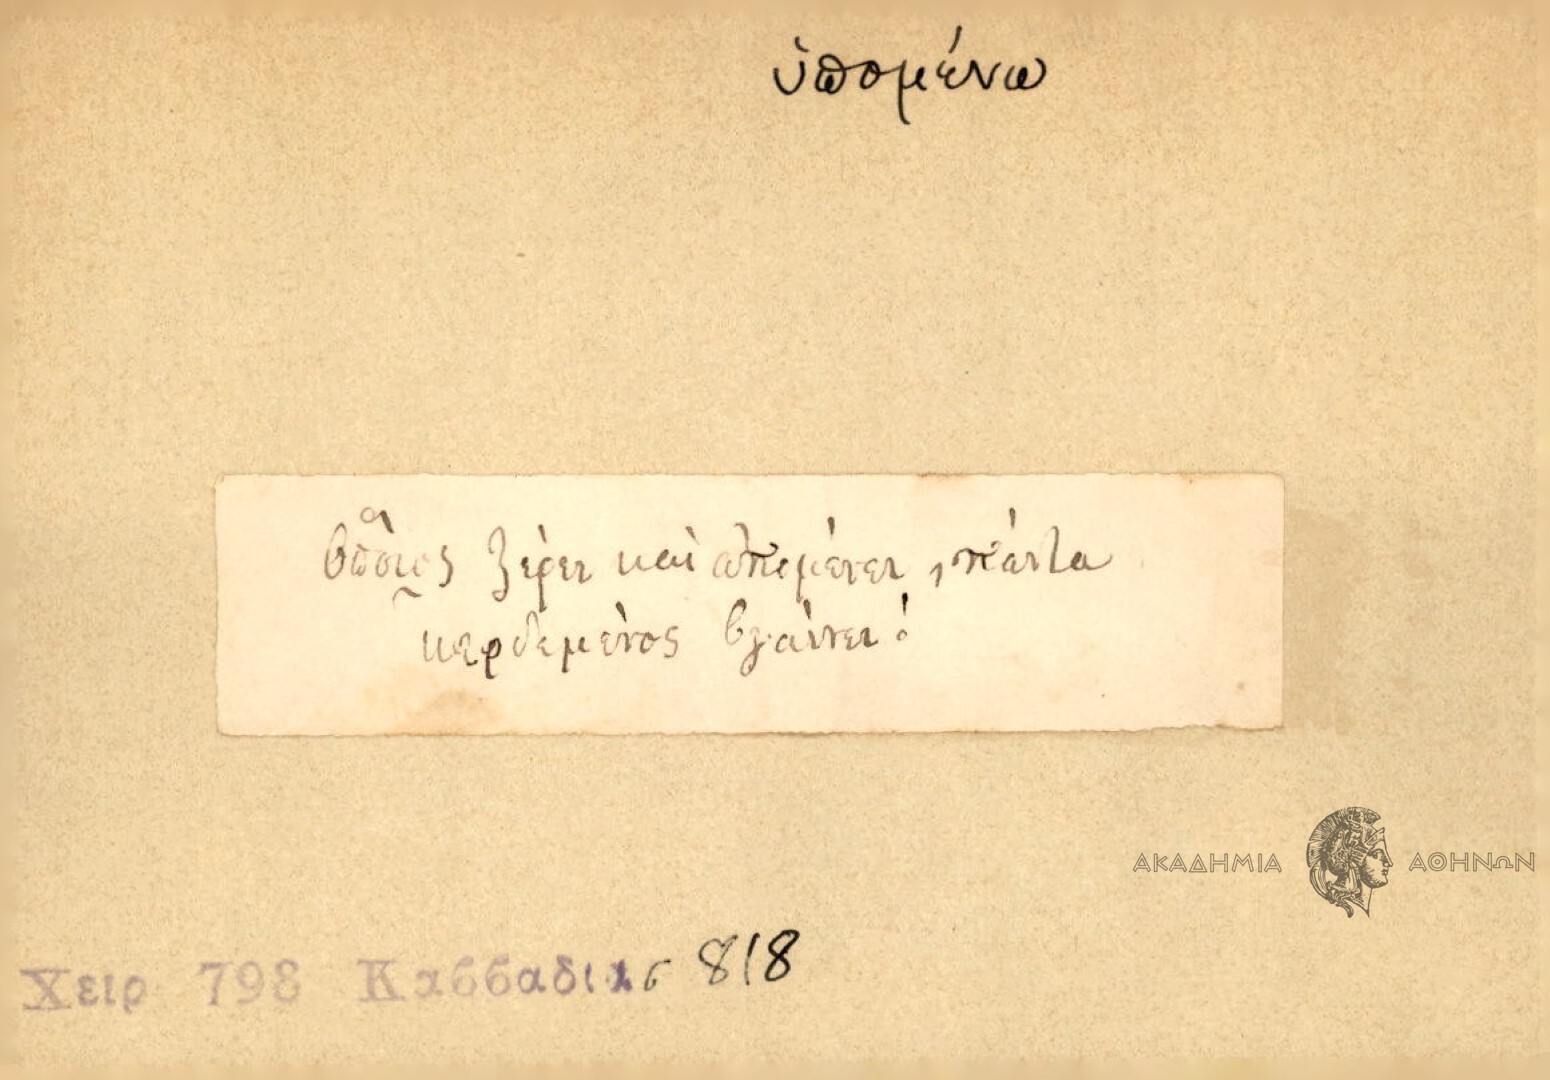 ὑπομένω
Ὅποιος ξέρει καὶ ἀπομένει, πάντα
κερδεμένος βγαίνει!
ΑΚΑΔΗΜΙΑ ΑΘΗΝΩΝ
Χειρ 798 Καββαδίας 818